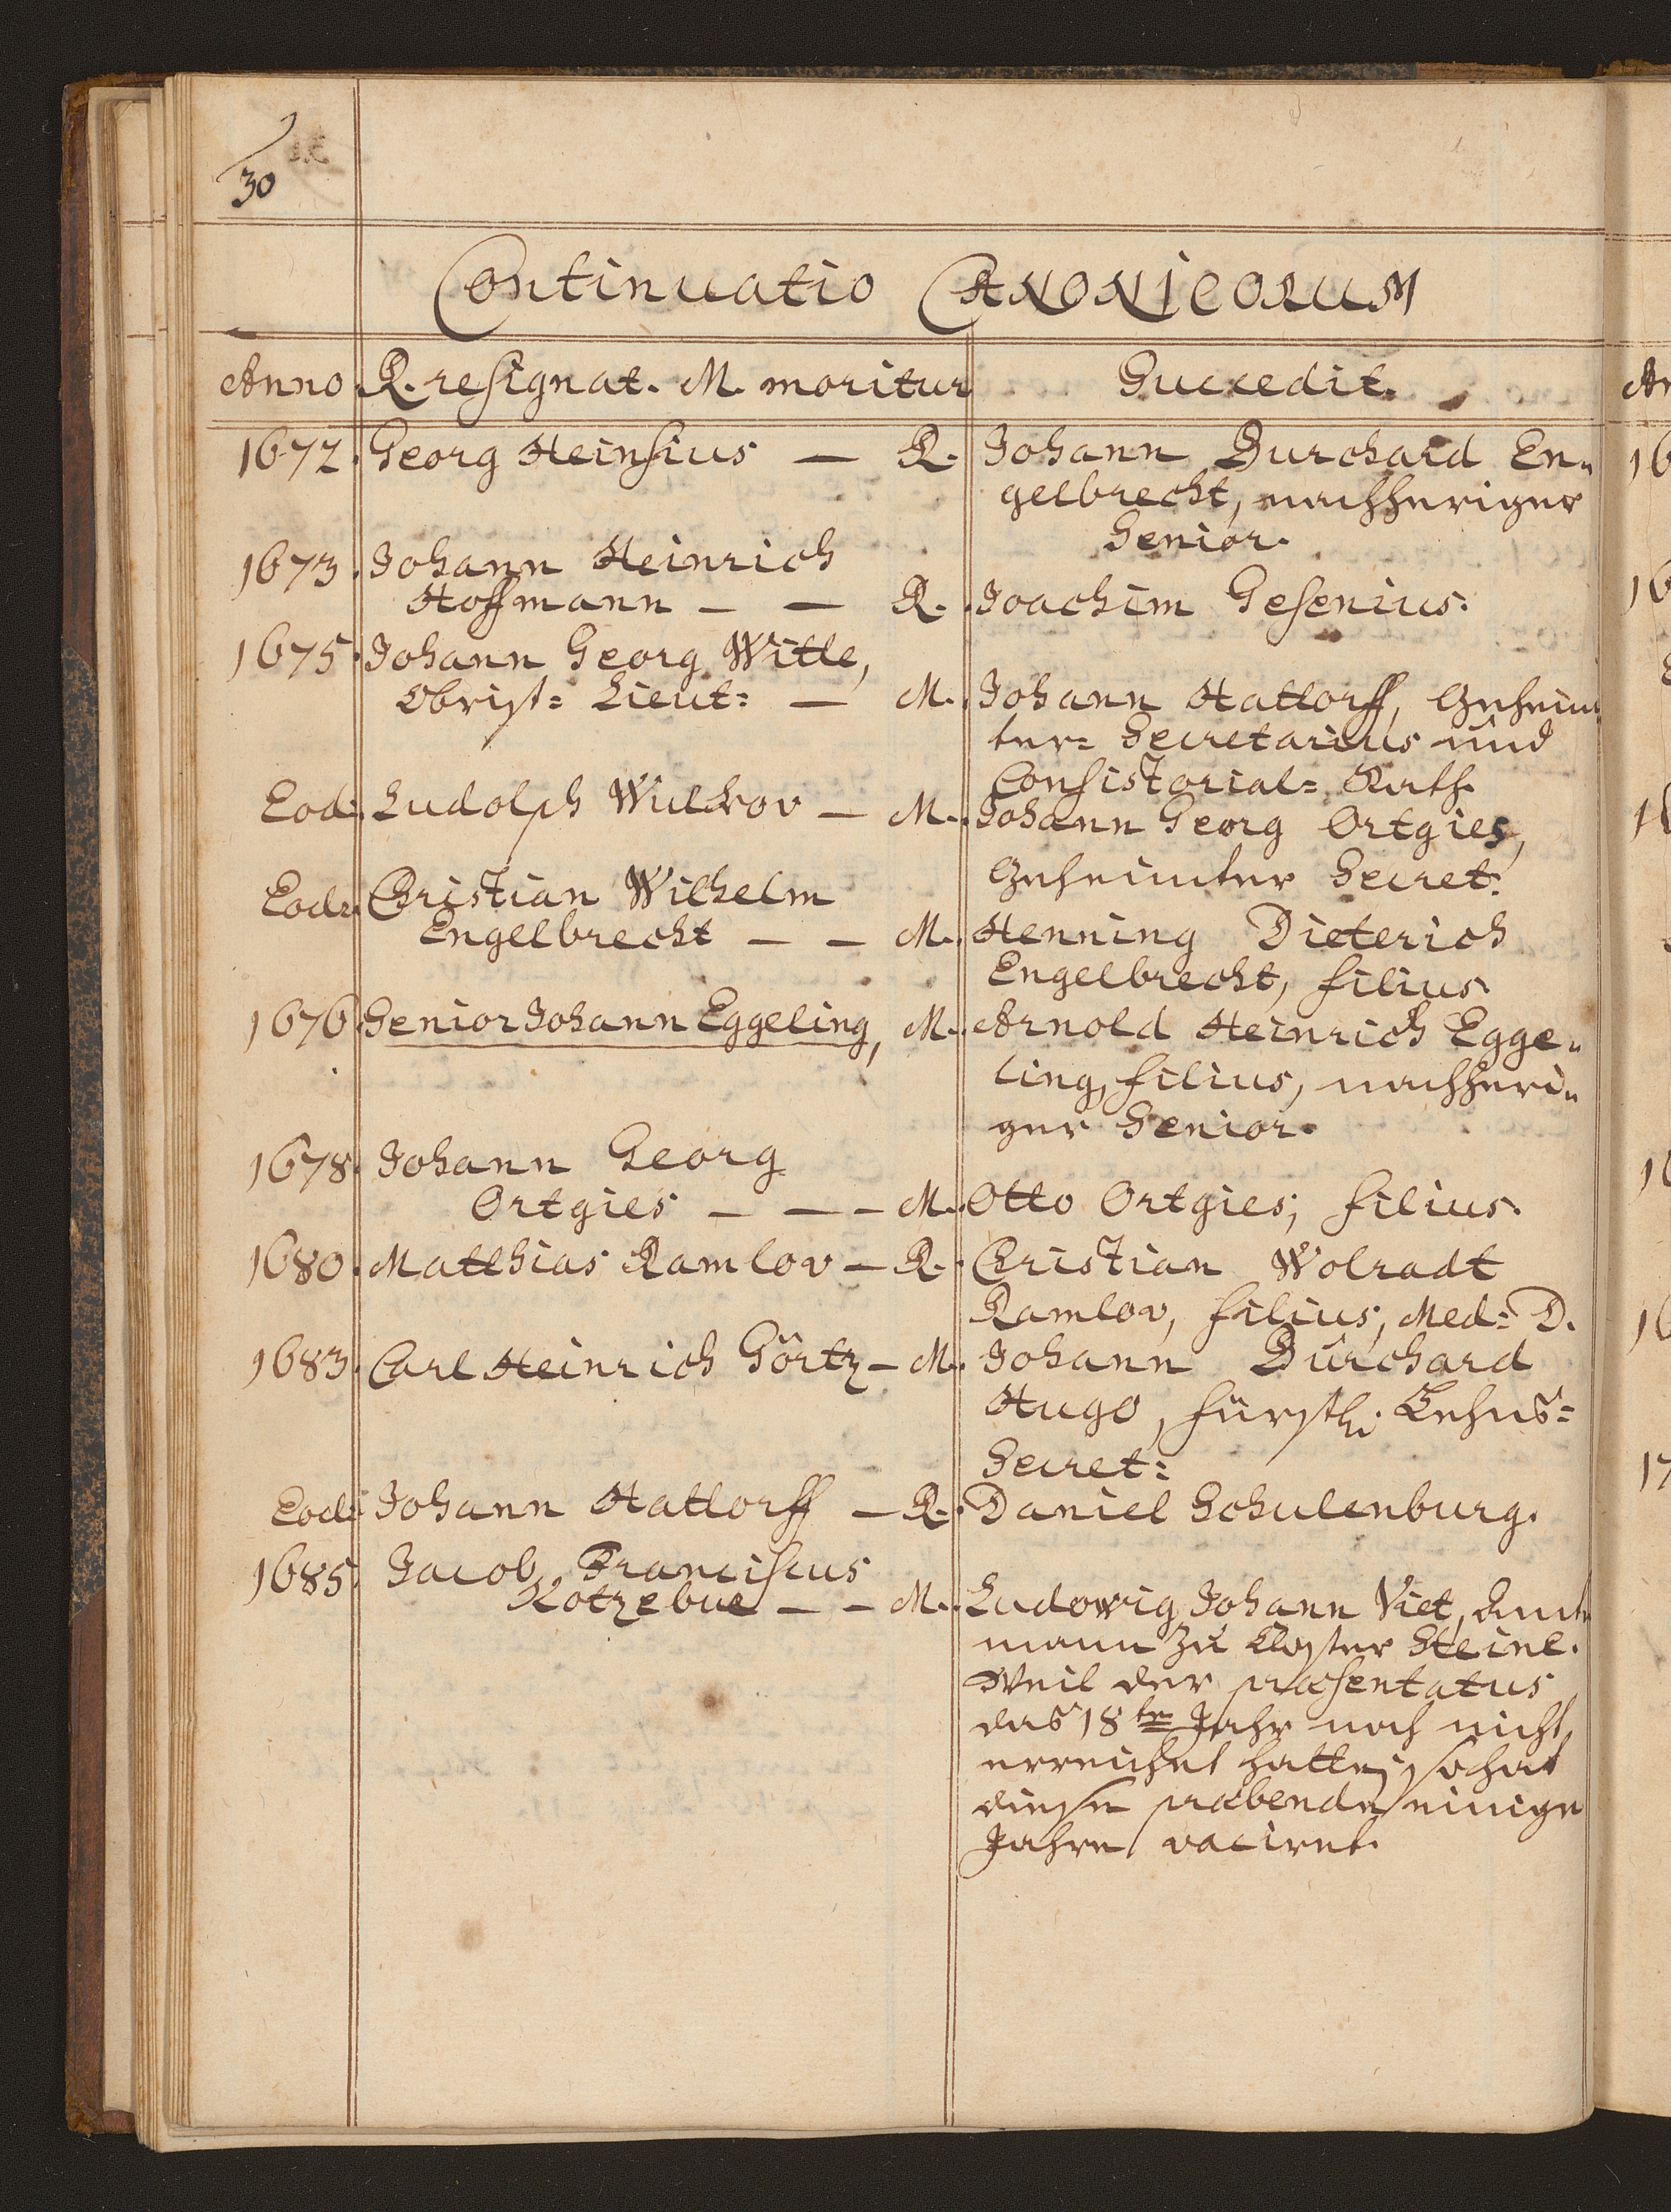 30
Continuatio CANONICORUM
Anno R. resignat. M. moritur Succedit.
1672. Georg Heinsius — R. Johann Burchard En„
gelbrecht, nachheriger
Senior.
1673. Johann Heinrich
Hoffmann — — R. Joachim Gesenius.
1675. Johann Georg Witte,
Obrist= Lieut: — M. Johann Hattorff, Geheim„
ter= Secretarius und
Consistorial= Rath.
Eod: Ludolph Wulckov — M. Johann Georg Ortgies,
Geheimter Secret:
Eod: Christian Wilhelm
Engelbrecht — — M. Henning Dieterich
Engelbrecht, filius
1676 Senior Johann Eggeling, M. Arnold Heinrich Egge„
ling, filius, nachheri„
ger Senior.
1678. Johann Georg
Ortgies — — — M. Otto Ortgies, filius.
1680. Matthias Ramlov — R. Christian Wolradt
Ramlov, filius, Med: D.
1683. Carl Heinrich Görtz — M. Johann Burchard
Hugo, fürstl. Lehns=
Secret:
Eod: Johann Hattorff — R. Daniel Schulenburg.
1685. Jacob Franciscus
Kotzebue — — M. Ludowig Johann Viet, Amt„
mann zu Closter Steine.
Weil der præsentatus
das 18te Jahr noch nicht
erreichet hatte, so hat
diese præbende einige
Jahre vaciret.